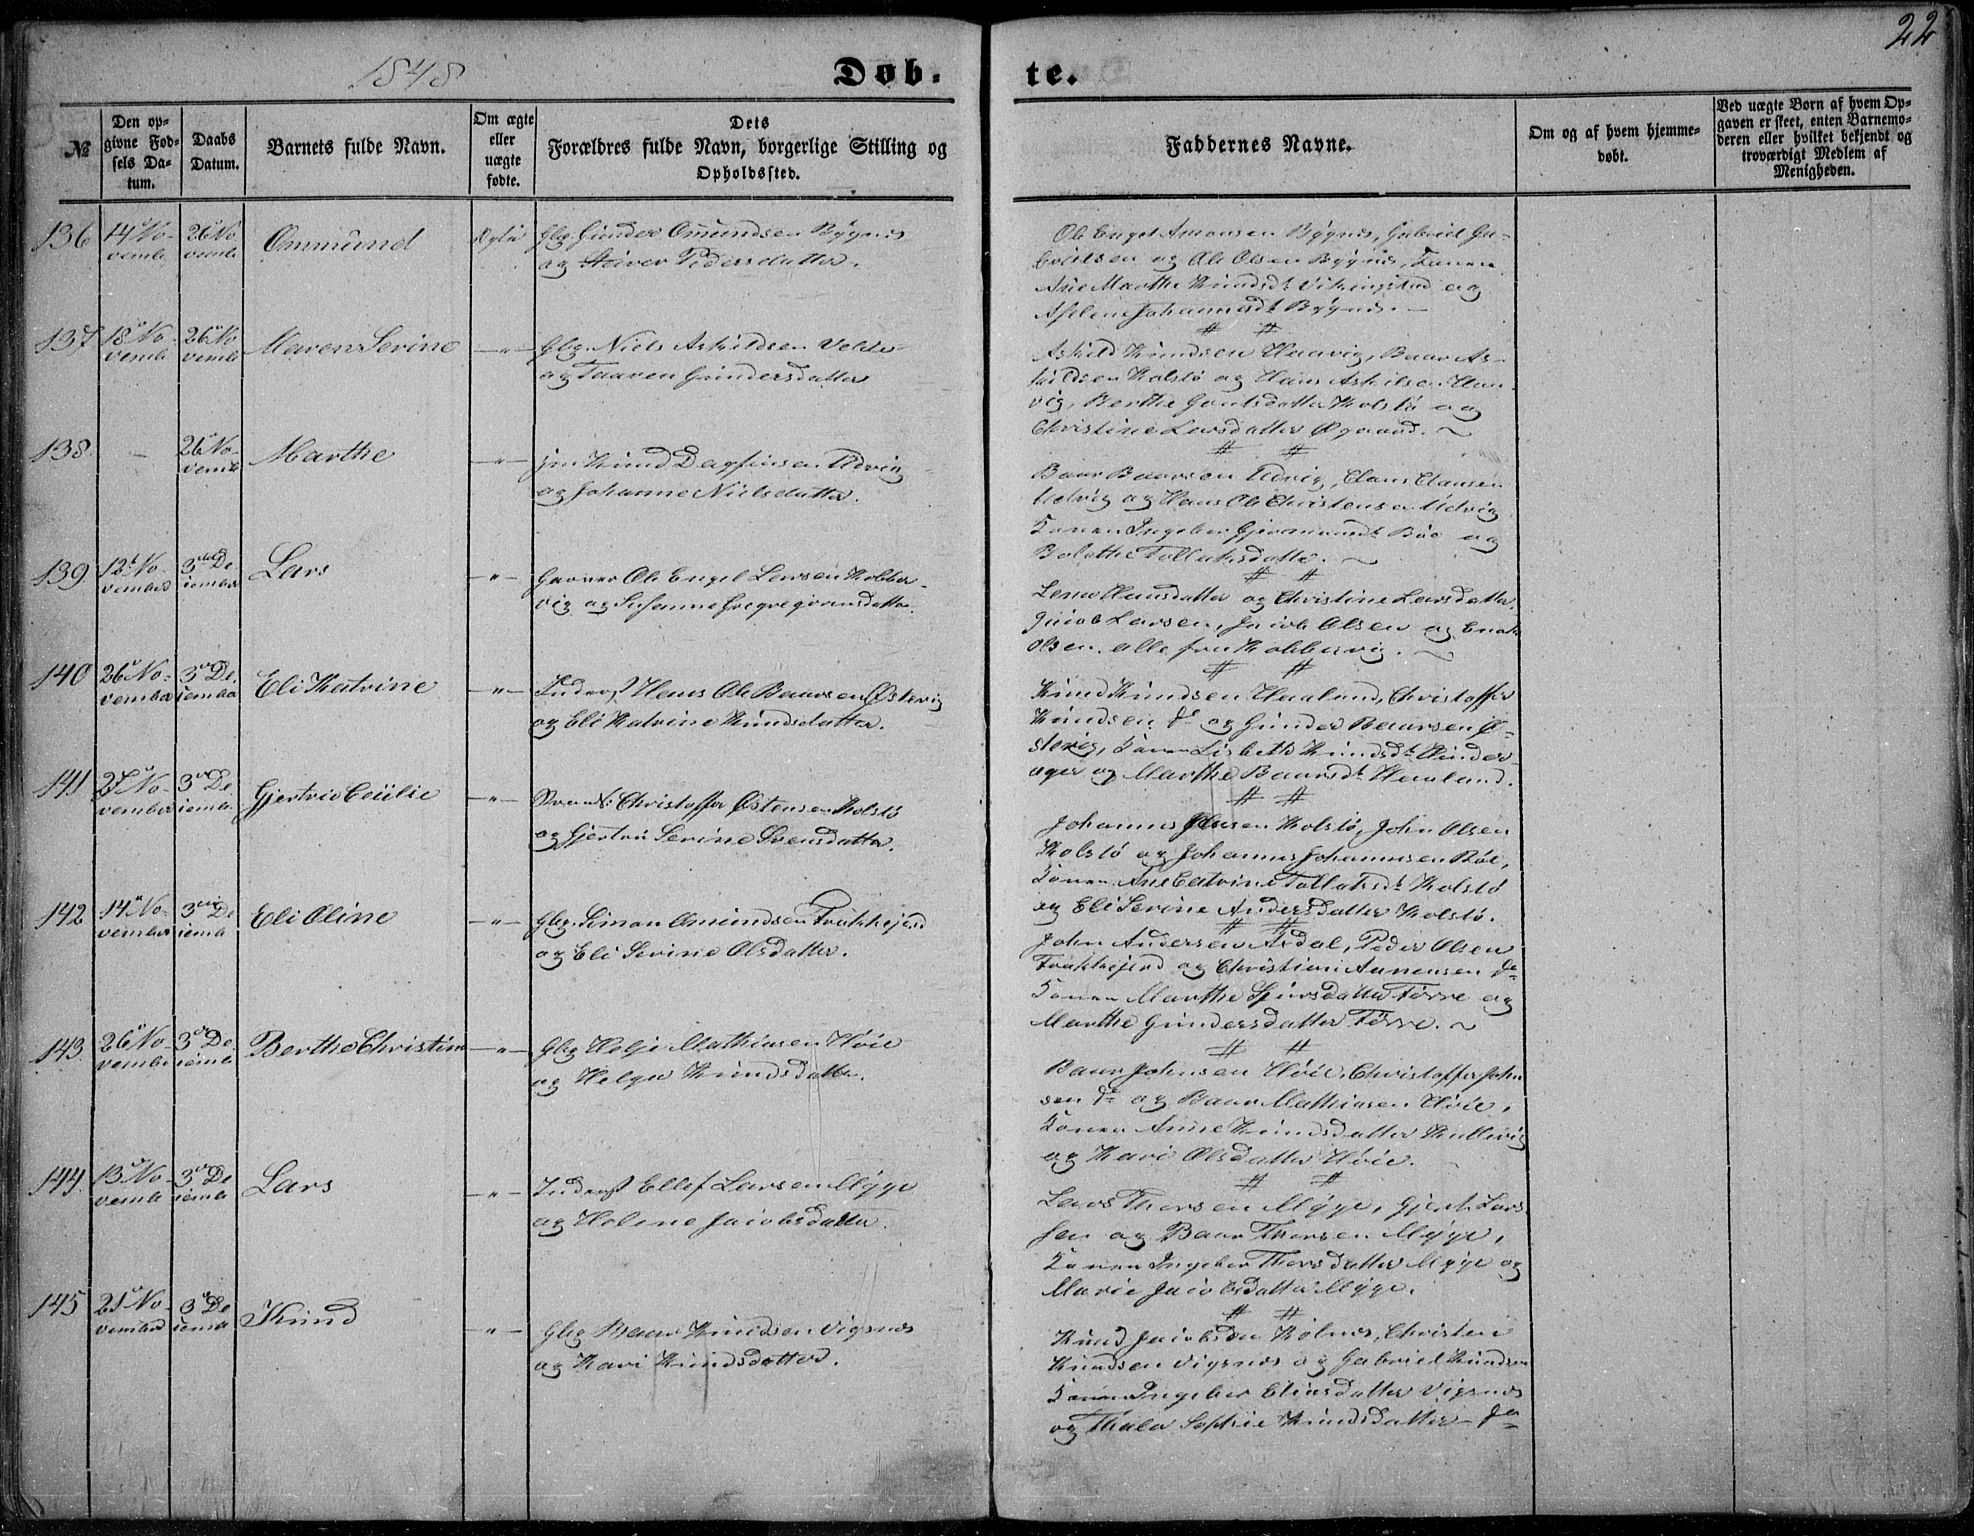 22
1848
Døb-
te.
№
Den op-
givne Fød-
sels Da-
tum.
Daabs
Datum.
Barnets fulde Navn.
Om ægte
eller
uægte
fødte.
Dets
Forældres fulde Navn, borgerlige Stilling og
Opholdssted.
Faddernes Navne.
Om og af hvem hjemme-
døbt.
Ved uægte Børn af hvem Op-
gaven er skeet, enten Barnemo-
deren eller hvilket bekjendt og
troværdigt Medlem af
Menigheden.
136
14 No-
vembr
26 No
vembr
Ommund
Ægte
Gbr. Gunder Omundsen Bygnes
og Pedersdatter.
Ole Engel Amonsen Bygnes, Gabriel Ga-
brielsen og Ole Olsen Bygnes, Konen
Ane Marthe Knudsdt Vikingstad og
Johannesdt Bygnes.
137
18 No-
vembr
26 No
vembr
Maren Serine
— " —
Gbr. Niels Askildsen
og Taaren Gundersdatter
Askild Knudsen Haavig, Baar As-
kildsen Kolstø og Hans Askilsen Haa-
vig, Berthe Kolstø og
Christine Larsdatter Øgaard.
138
—
26 No-
vembr
Marthe
— " —
Knud Dagfinsen Udvig
og Johanne Nielsdatter.
Baar Baarsen Udvig, Claus Clausen
Udvig og Hans Ole Christensen Udvig
Konen Ingeber Bøe og
Bolethe Tollaksdatter.
139
12t No-
vember
3die De
cember
Lars
— " —
Ole Engel Larsen Kobber-
vig og Susanne
Lene Hansdatter og Christine Larsdatter,
Jacob Larsen, Jacob Olsen og Enok
Olsen, alle fra Kobbervig.
140
26 No-
vember
3 De
cember
Eli Katrine
— " —
Inderst Hans Ole Baarsen Østevig
og Eli Katrine Knudsdatter.
Knud Knudsen Haaland, Christoffer
Knudsen do og Gunder Baarsen Ø-
stevig, Konen Lisbeth Knudsdt Hinder-
ager og Marthe Baarsdt Haaland.
141
27 No-
vember
3 De
cembr
Gjertrud Cecilie
— " —
Christoffer Østensen Kolstø
og Gjertru Serine Svensdatter.
Johannes Olsen Kolstø, John Olsen
Kolstø og Johannes Johannesen Bøe,
Konen Ane Catrine Tollaksdt Kolstø
og Eli Serine Andersdatter Kolstø.
142
14 No-
vember
3die De
cembr
Eli Oline
— " —
Gbr. Simon Omundsen Frakkejerd
og Eli Serine Olsdatter.
John Andersen Aadal, Peder Olsen
Frakkejerd og Christian Annensen do
Konen Marthe Tørre og
Marthe Gundersdatter Tørre.
143
26 No-
vembr
3 De
cembr
Berthe Christine
— " —
Gbr. Helje Mathiasen Høie
og Helga Knudsdatter.
Baar Johnsen Høie, Christoffer John-
sen do og Baar Mathiasen Høie,
Konen Anne Knudsdatter Kallevig
og Kari Olsdatter Høie.
144
13 No-
vembr
3 De
cembr
Lars
— " —
Inderst Ellef Larsen Myge
og Helene Jacobsdatter.
Lars Thorsen Myge, Gjert Lars-
sen og Baar Thorsen Myge,
Konen Ingeber Thorsdatter Myge og
Marie Jacobsdatter Myge.
145
21 No-
vember
3 De
cembr
Knud
— " —
Gbr Baar Knudsen Vigsnes
og Kari Knudsdatter.
Knud Jacobsen Kolnes, Christen
Knudsen Vigsnes og Gabriel Knudsen
Konen Ingeber Eliasdatter Vigsnes
og Thale Sophie Knudsdatter do